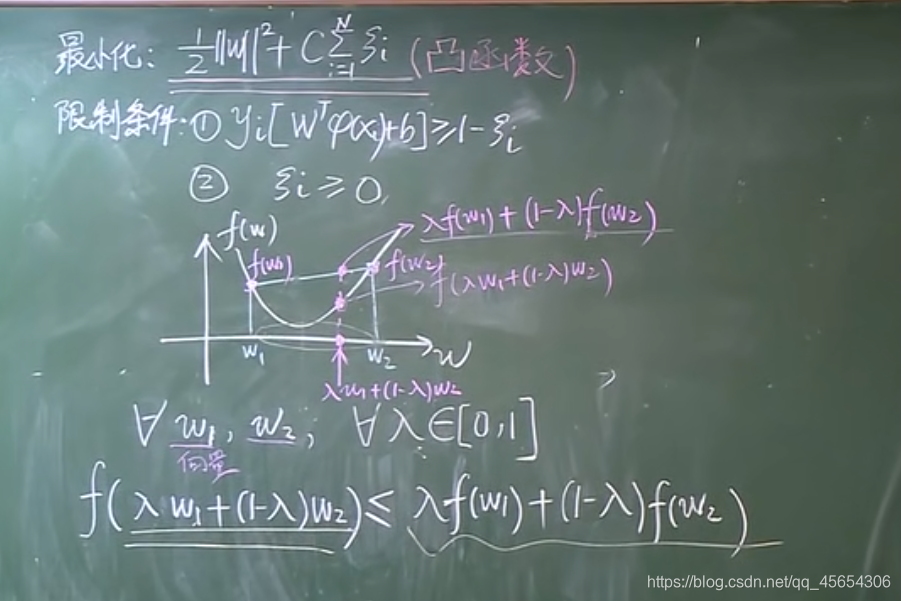 最小化: ½||w||²+C∑ᵢ₌₁ᴺξᵢ (凸函数)
限制条件:① yᵢ[Wᵀφ(xᵢ)+b]≥1-ξᵢ
② ξᵢ≥0,
λf(w₁)+(1-λ)f(w₂)
f(w)
f(w₁)
f(w₂)
f(λw₁+(1-λ)w₂)
w₁
w₂
w
λw₁+(1-λ)w₂
∀ w₁, w₂, ∀λ∈[0,1]
向量
f(λw₁+(1-λ)w₂)≤λf(w₁)+(1-λ)f(w₂)
https://blog.csdn.net/qq_45654306